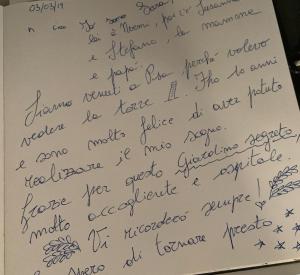 03/03/19
Io sono Sara,
lei è Noemi, poi c'è Susanna
e Stefano, la mamma
e papà.
Siamo venuti a Pisa perché volevo
vedere la torre. Ho 10 anni
e sono molto felice di aver potuto
realizzare il mio sogno.
Grazie per questo Giardino segreto,
molto accogliente e ospitale.
Vi ricorderò sempre!
spero di tornare presto